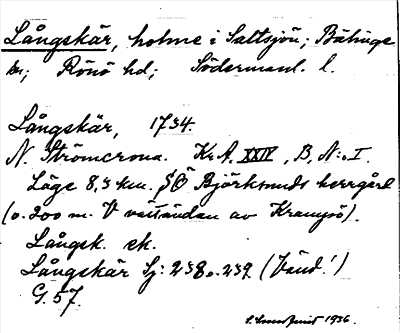 Långskär, holme i Saltsjön; Bälinge
sn; Rönö hd; Södermanl. l.
Långskär, 1734.
N. Strömcrona. Kr. A. XXIV, B, N:o I.
Läge 8,3 km. SÖ Björksunds herrgård
(o. 200 m. V väständan av Kramsö).
Långsk. ek.
Långskär Sj: 238 o. 239 (Vänd!)
G. 57.
1936.